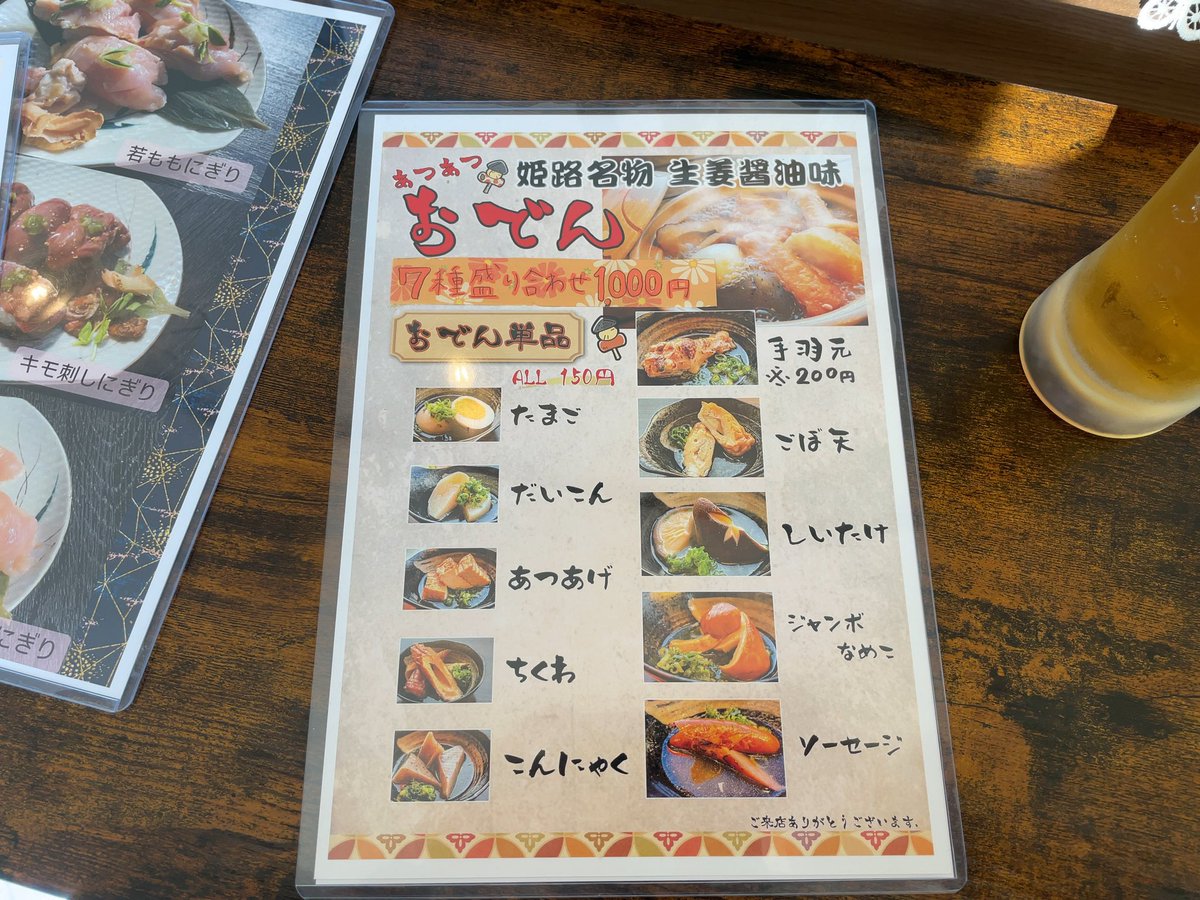 若ももにぎり
キモ刺しにぎり
にぎり
あつあつ
姫路名物 生姜醤油味
おでん
7種盛り合わせ1000円
おでん単品
ALL 150円
たまご
だいこん
あつあげ
ちくわ
こんにゃく
手羽元
※200円
ごぼ天
しいたけ
ジャンボ
なめこ
ソーセージ
ご来店ありがとうございます。